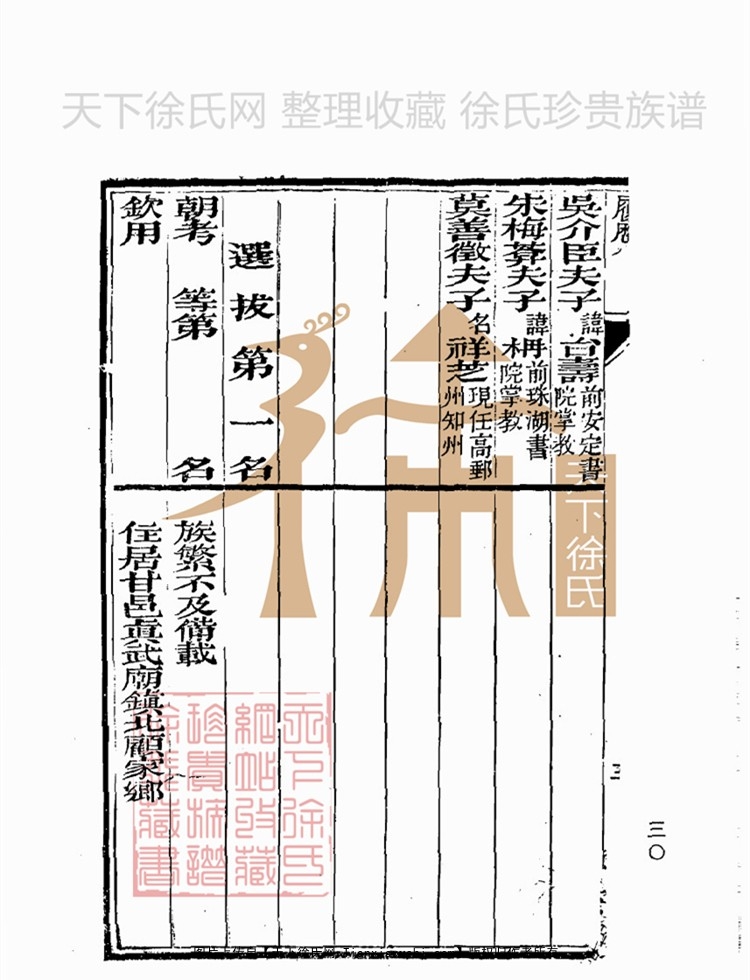 天下徐氏网 整理收藏 徐氏珍贵族谱
吳介臣夫子 諱台壽 前安定書院掌教
朱梅夫子 諱 前珠湖書院掌教
莫善徵夫子 名祥芝 現任高郵州知州
選拔第一名
朝考 等第 名
欽用
族繁不及備載
住居甘邑眞武廟鎮北顧家鄉
三
三〇
徐
天下徐氏
天下徐氏
網站收藏
珍貴族譜
藏書